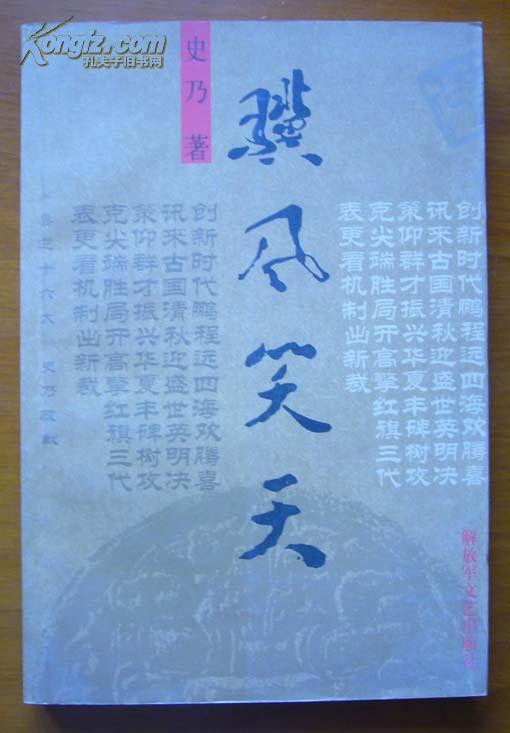 Kongfz.com
孔夫子旧书网
史乃 著
骥风笑天
创新时代鹏程远四海欢腾喜
讯来古国清秋迎盛世英明决
策仰群才振兴华夏丰碑树攻
克尖端胜局开高擎红旗三代
表更看机制出新裁
创新时代鹏程远四海欢腾喜
讯来古国清秋迎盛世英明决
策仰群才振兴华夏丰碑树攻
克尖端胜局开高擎红旗三代
表更看机制出新裁
十六大 史乃敬献
解放军文艺出版社